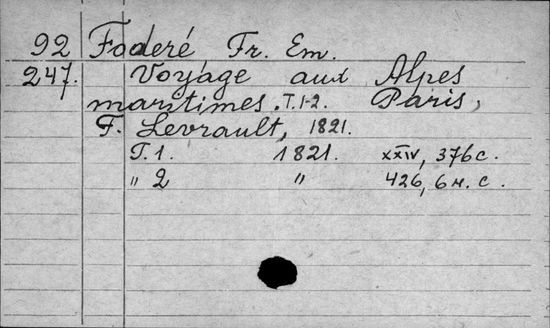 92 Foderé Fr. Em.
247. Voyage aux Alpes
maritimes. T.1-2. Paris,
F. Levrault, 1821.
T. 1. 1821. XXIV, 376 c.
" 2 " 426, 6 н. с.